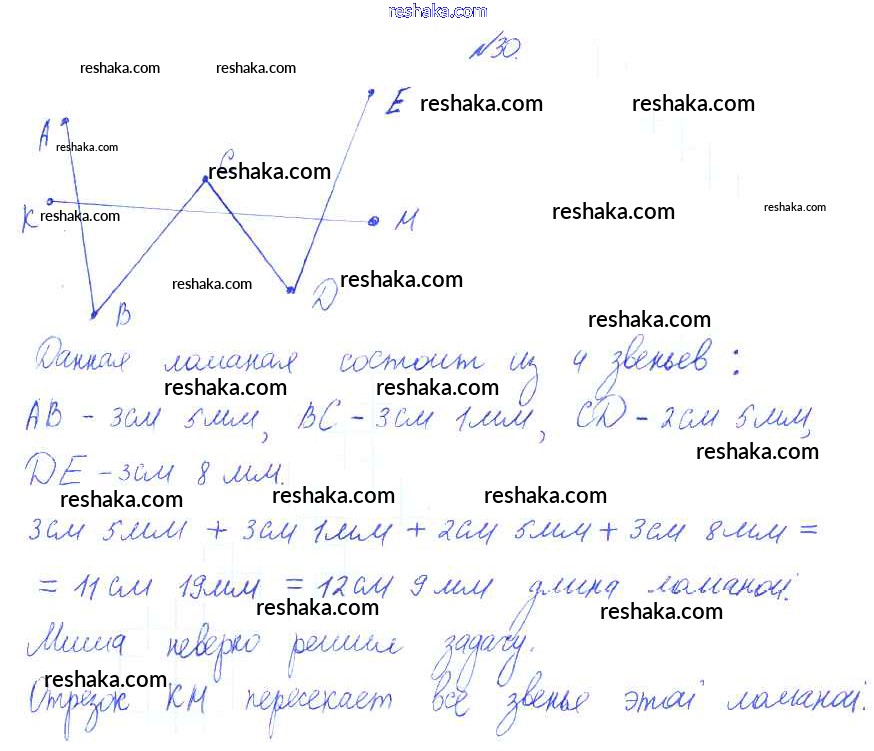 reshaka.com
№30.
reshaka.com reshaka.com
E reshaka.com reshaka.com
A reshaka.com
C reshaka.com
K reshaka.com M reshaka.com reshaka.com
reshaka.com D reshaka.com
B reshaka.com
Данная ломаная состоит из 4 звеньев:
reshaka.com reshaka.com
AB - 3см 5мм, BC - 3см 1мм, CD - 2см 5мм,
reshaka.com
DE - 3см 8 мм.
reshaka.com reshaka.com reshaka.com
3см 5мм + 3см 1мм + 2см 5мм + 3см 8мм =
= 11см 19мм = 12см 9мм длина ломаной.
reshaka.com reshaka.com
Миша неверно решил задачу.
reshaka.com
Отрезок KM пересекает все звенья этой ломаной.